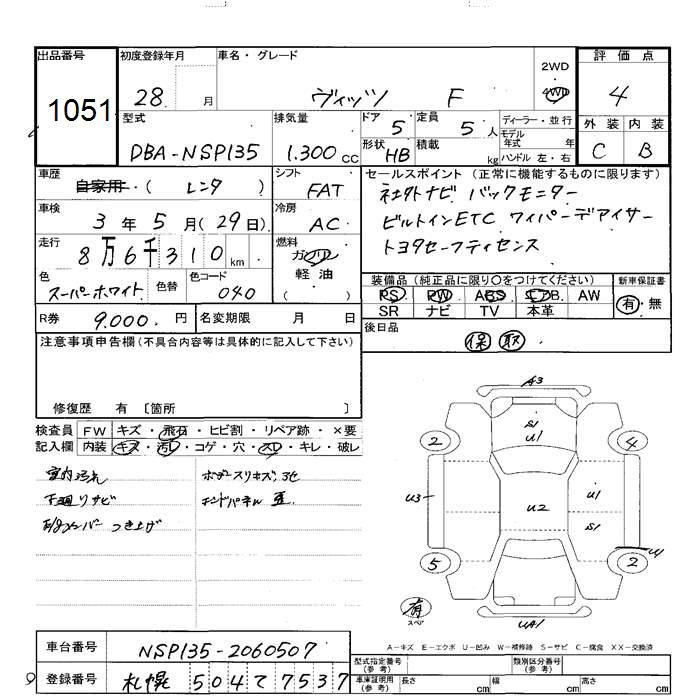 出品番号
1051
初度登録年月
28. 月
車名・グレード
ヴィッツ F
2WD
4WD
評価点
4
外装 内装
C B
型式
DBA-NSP135
排気量
1.300 cc
ドア
5
定員
5 人
形状
HB
積載
kg
ディーラー・並行
モデル
年式 年
ハンドル 左・右
車歴
自家用・( レンタ )
シフト
FAT
車検
3 年 5 月 (29 日)
冷房
AC
走行
8万6千310km
燃料
ガソリン
軽油
色
スーパーホワイト
色替
色コード
040
R券 9.000. 円
名変期限 月 日
セールスポイント (正常に機能するものに限ります)
社外ナビ バックモニター
ビルトインETC ワイパーデアイサー
トヨタセーフティセンス
装備品 (純正品に限り○をつけてください)
PS PW ABS エアB AW
SR ナビ TV 本革
新車保証書
有・無
後日品
保 取
注意事項申告欄(不具合内容等は具体的に記入して下さい)
修復歴 有 〔箇所 〕
検査員
記入欄
FW キズ・飛石・ヒビ割・リペア跡・×要
内装 キズ・汚レ・コゲ・穴・スレ・キレ・破レ
室内汚れ
下廻りサビ
つき上げ
エンドパネル
A3
S1
U1
2
4
U3
U2
U1
S1
5
2
U1
有
スペア
UA1
A-キズ E-エクボ U-凹み W-補修跡 S-サビ C-腐食 XX-交換済
車台番号
NSP135-2060507
登録番号
札幌 504 て 7537
型式指定番号
(参考)
類別区分番号
(参考)
車庫証明用
(参考)
長さ cm
幅 cm
高さ cm